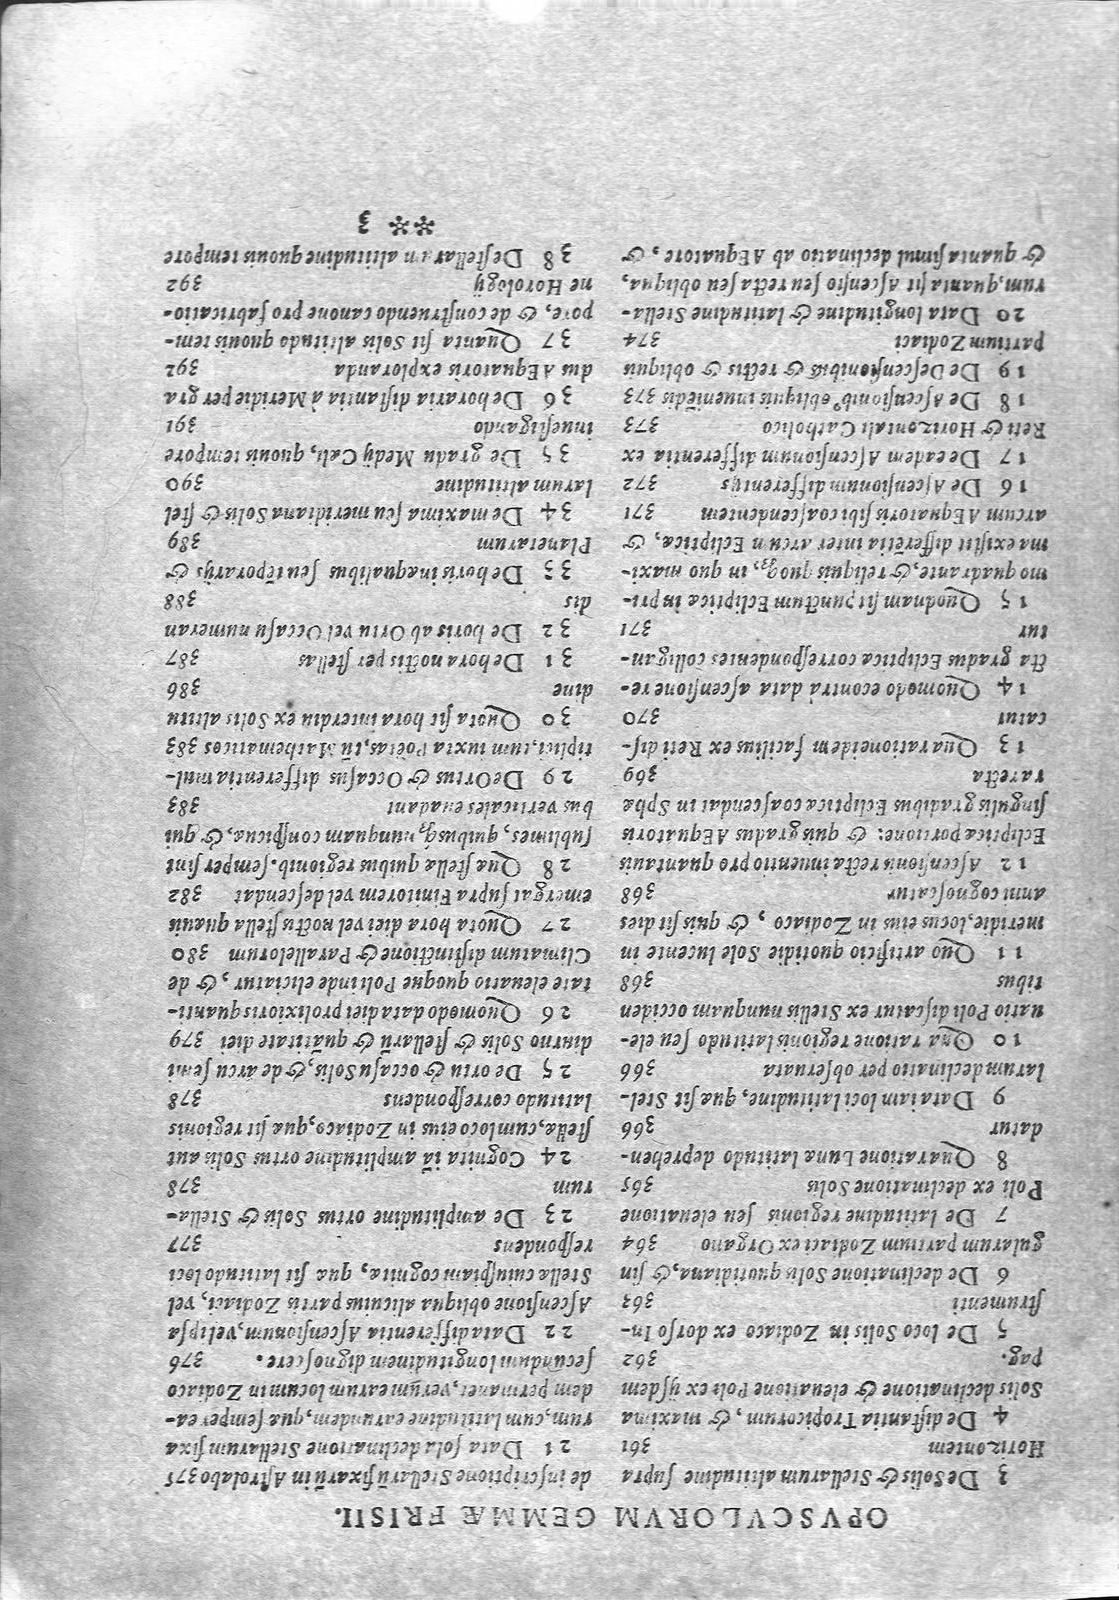 OPVSCVLORVM GEMMÆ FRISII.
3 De Solis & Stellarum altitudine ſupra
Horizontem 361
4 De diſtantia Tropicorum, & maxima
Solis declinatione & eleuatione Poli ex ijſdem
pag. 362
5 De loco Solis in Zodiaco ex dorſo In-
ſtrumenti 363
6 De declinatione Solis quotidiana, & ſin
gularum partium Zodiaci ex Organo 364
7 De latitudine regionis ſeu eleuatione
Poli ex declinatione Solis 365
8 Qua ratione Lunæ latitudo deprehen-
datur 366
9 Data iam loci latitudine, quæ ſit Stel-
larum declinatio per obſeruata 366
10 Qua ratione regionis latitudo ſeu ele-
uatio Poli diſcatur ex Stellis nunquam occiden
tibus 368
11 Quo artificio quotidie Sole lucente in
meridie, locus eius in Zodiaco, & quis ſit dies
anni cognoſcatur 368
12 Aſcenſionis rectæ inuentio pro quantauis
Eclipticæ portione: & quis gradus AEquatoris
ſingulis gradibus Eclipticæ coaſcendat in Sphæ
ra recta 369
13 Qua ratione idem facilius ex Reti diſ-
catur 370
14 Quomodo econtrà data aſcenſione re-
cta gradus Eclipticæ correſpondentes colligan-
tur 371
15 Quodnam ſit punctum Eclipticæ in pri-
mo quadrante, & reliquis quoqȝ, in quo maxi-
ma exiſtit differētia inter arcum Eclipticæ, &
arcum AEquatoris ſibi coaſcendentem 371
16 De Aſcenſionum differentijs 372
17 De eadem Aſcenſionum differentia ex
Reti & Horizontali Catholico 373
18 De Aſcenſionib⁹ obliquis inueniēdis 373
19 De Deſcenſionibus & rectis & obliquis
partium Zodiaci 374
20 Data longitudine & latitudine Stella-
rum, quanta ſit Aſcenſio ſeu recta ſeu obliqua,
& quanta ſimul declinatio ab AEquatore, &
de inſcriptione Stellarū fixarū in Aſtrolabo 375
21 Data ſola declinatione Stellarum fixa
rum, cum latitudine earundem, quæ ſemper ea-
dem permanet, verum earum locum in Zodiaco
ſecundum longitudinem dignoſcere. 376
22 Data differentia Aſcenſionum, vel ipſa
Aſcenſione obliqua alicuius partis Zodiaci, vel
Stellæ cuiuſpiam cognita, quæ ſit latitudo loci
reſpondens 377
23 De amplitudine ortus Solis & Stella-
rum 378
24 Cognita iā amplitudine ortus Solis aut
ſtellæ, cum loco eius in Zodiaco, quæ ſit regionis
latitudo correſpondens 378
25 De ortu & occaſu Solis, & de arcu ſemi
diurno Solis & ſtellarū & quātitate diei 379
26 Quomodo data diei prolixioris quanti-
tate eleuatio quoque Poli inde eliciatur, & de
Climatum diſtinctione & Parallelorum 380
27 Quota hora diei vel noctis ſtella quæuis
emergat ſupra Finitorem vel deſcendat 382
28 Quæ ſtellæ quibus regionib. ſemper ſint
ſublimes, quibusqȝ nunquam conſpicuæ, & qui
bus verticales euadant 383
29 De Ortus & Occaſus differentia mul-
tiplici, tum iuxta Poëtas, tū Mathematicos 383
30 Quota ſit hora interdiu ex Solis altitu
dine 386
31 De hora noctis per ſtellas 387
32 De horis ab Ortu vel Occaſu numeran
dis 388
33 De horis inæqualibus ſeu tēporarijs &
Planetarum 389
34 De maxima ſeu meridiana Solis & ſtel
larum altitudine 390
35 De gradu Medij Cœli, quouis tempore
inueſtigando 391
36 De horaria diſtantia à Meridie per gra
dus AEquatoris exploranda 392
37 Quanta ſit Solis altitudo quouis tem-
pore, & de conſtruendo canone pro fabricatio-
ne Horologij 392
38 De ſtellarum altitudine quouis tempore
** 3